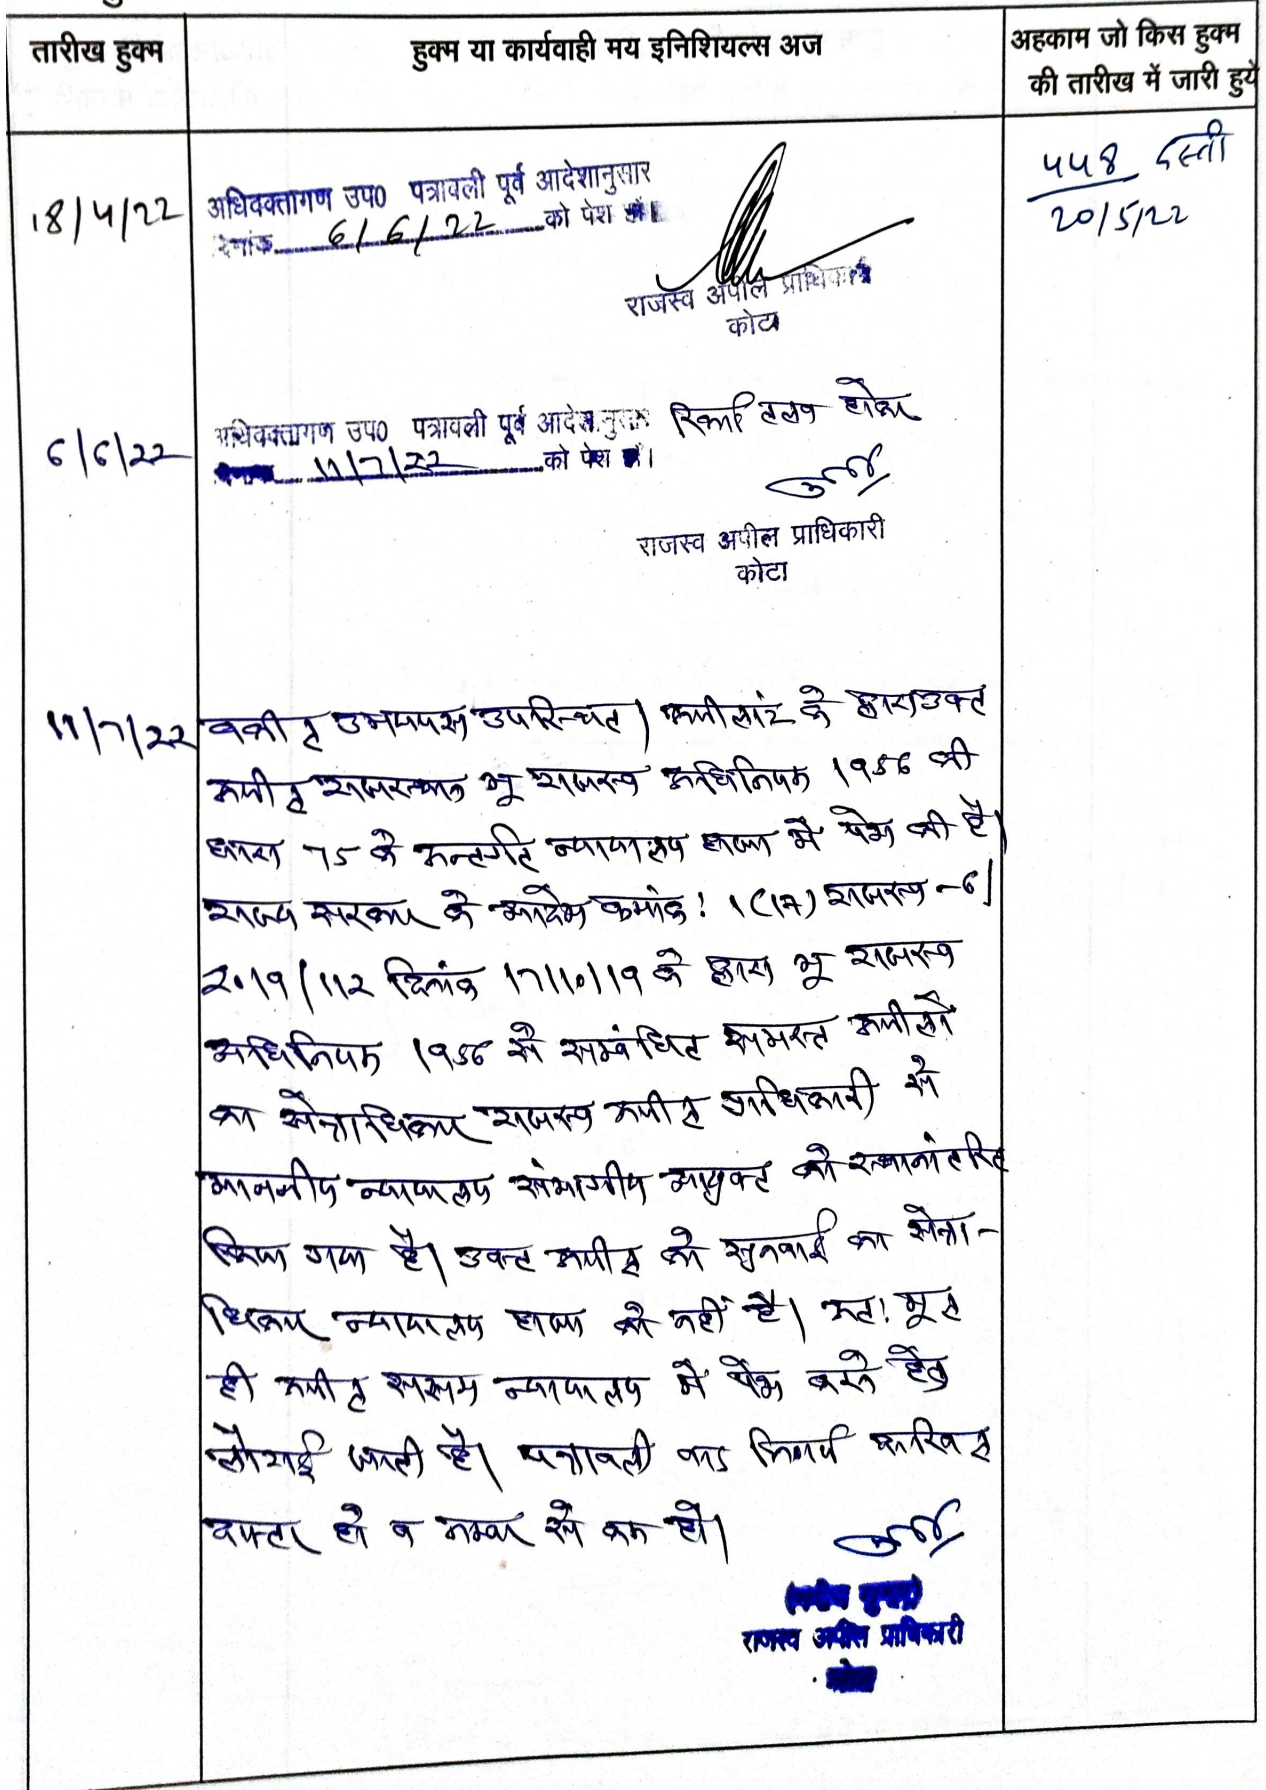 तारीख हुक्म
हुक्म या कार्यवाही मय इनिशियल्स अज
अहकाम जो किस हुक्म
की तारीख में जारी हुये
18/4/22
अधिवक्तागण उप0 पत्रावली पूर्व आदेशानुसार
दिनांक 6/6/22 को पेश हो।
राजस्व अपील प्राधिकारी
कोटा
448 दस्ती
20/5/22
6/6/22
अधिवक्तागण उप0 पत्रावली पूर्व आदेशानुसार रिकॉर्ड तलब होकर
11/7/22 को पेश हो।
राजस्व अपील प्राधिकारी
कोटा
11/7/22
वकील उभयपक्ष उपस्थित। अपीलांट के द्वारा उक्त
अपील राजस्थान भू राजस्व अधिनियम 1956 की
धारा 75 के अन्तर्गत न्यायालय हाजा में पेश की है।
राज्य सरकार के आदेश क्रमांक: 1(17) राजस्व-6/
2019/112 दिनांक 17/10/19 के द्वारा भू राजस्व
अधिनियम 1956 से सम्बंधित समस्त अपीलों
का क्षेत्राधिकार राजस्व अपील प्राधिकारी से
माननीय न्यायालय संभागीय आयुक्त को स्थानांतरित
किया गया है। उक्त अपील को सुनवाई का क्षेत्रा-
धिकार न्यायालय हाजा को नहीं है। अत: मूल
ही अपील सक्षम न्यायालय में पेश करने हेतु
लौटाई जाती है। पत्रावली बाद निर्णय दाखिल
दफ्तर हो व नम्बर से कम हो।
राजस्व अपील प्राधिकारी